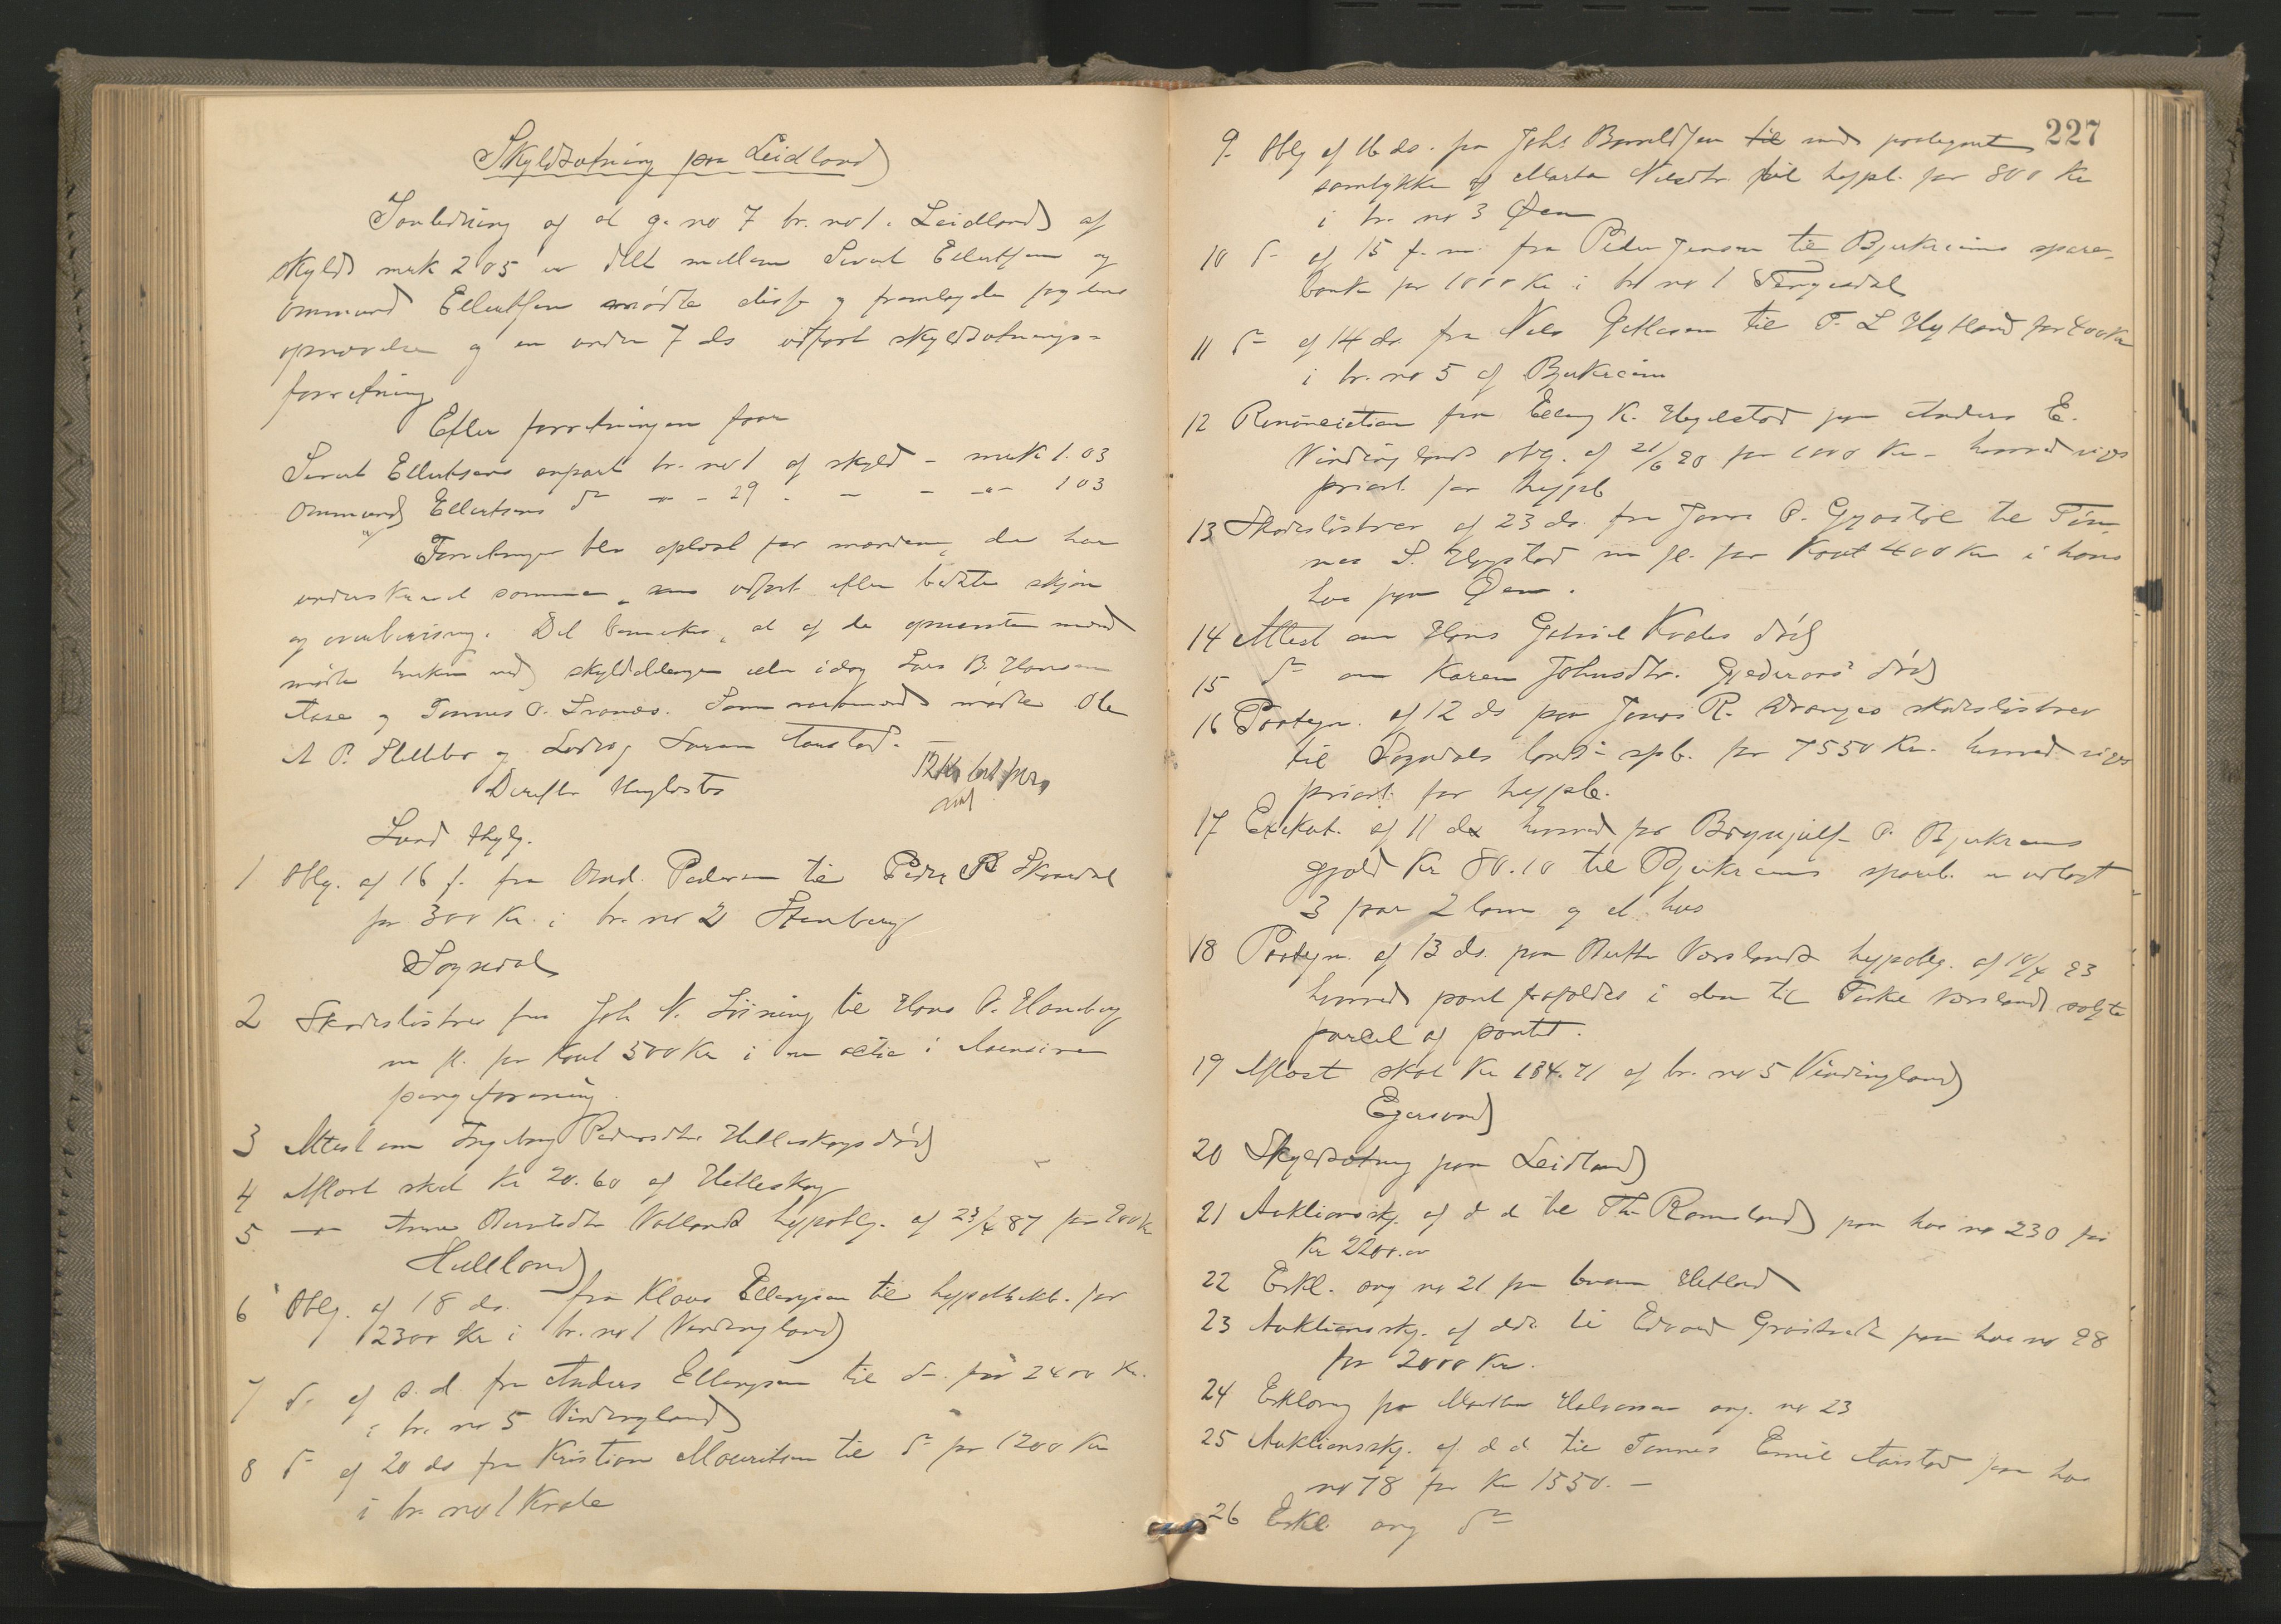 Skyldsætning paa Leidland
I anledning af at g. no 7 br. no 1. Leidland af
skyld mrk 2 05 er delt mellem Sivert Ellertsen og
Ommund Ellertsen mødte disse og fremlagde fogdens
opnævelse og en under 7 ds udført skyldsætnings-
forretning
Efter forretningen faar
Sivert Ellertsens anpart br. no 1 af skyld - mrk 1.03
Ommund Ellertsens do - - 29 - - - 1 03
Forretningen blev oplæst for mændene, der har
underskrevet samme, udført efter bedste skjøn
og overbevisning. Det bemerkes, at af de opnævnte mænd
mødte hverken ved skylddelingen eller idag Lars B. Hansen
Aase og Tønnes O. Svanes. Som varamænd mødte Ole
A P. Slettebø og Ludvig Søren Aarstad.
Derefter thinglæstes
Lund thgl.
1 Obl. af 16 f. fra And. Pedersen til Peder P Skaardal
for 300 Kr. i br. no 2 Stenberg
Sogndal
2 Skadesløsbrev fra Joh N. Løining til Hans P. Haneberg
m fl. for Kont 500 Kr i en actie i
3 Attest om Ingeborg Pedersdtr Helleskogs død
4 Aflæst skat Kr 20.60 af Helleskog
5 - Anne Berntsdtr Nellands hypobl. af 23/4 87 for 200 K
Helleland
6 Obl. af 18 ds. fra Klaus Ellingsen til hypothekb. for
2300 Kr i br. no 1 Vindingland
7 do af s. d. fra Anders Ellingsen til do. for 2400 Kr.
i br. no 5 Vindingland
8 do af 20 ds fra Kristian Mauritsen til do for 1200 Kr
i br. no 1 Kvale
227
9. Obl af 16 ds. fra Johs Barrildsen til med
samtykke af Marta Nilsdtr. til hypb. for 800 Kr
i br. no 3 Øen
10 do af 15 f. m. fra Peder Jensen til Bjerkreims spare-
bank for 1000 Kr i br no 1
11 do af 14 ds. fra Nils Gitlesen til T. L Hytland for 400 Kr
i br. no 5 af Bjerkreim
12 Renunciation fra Elling K. Hegelstad paa Anders E.
Vindinglands obl. af 21/6 90 for 1000 Kr - hvorved viges
priorit. for hypb
13 Skadesløsbrev af 23 ds. fra Jonas P. Gyastøl til Tøn-
nes S. Puntervold m fl. for Kont 400 Kr i hans
hus paa Øen.
14 Attest om Hans Gabriel Kvales død
15 do om Karen Johnsdtr. død
16 Paategn. af 12 ds paa Jonas R. skadesløsbrev
til Sogndals lands spb. for 7550 Kr. hvorved viges
priorit. for hypb.
17 Exekut. af 11 ds hvorved for Brynjulf P. Bjerkreims
gjæld Kr 80.10 til Bjerkreims spareb. er udlagt
3 faar 2 lam og et hus
18 Paategn. af 13 ds. paa hypobl. af 10/4 93
hvorved pant frafaldes i den til solgte
parcel af pantet.
19 Aflæst skat Kr 134.71 af br. no 5 Vindingland
Egersund
20 Skyldsætning paa Leidland
21 Auktionsskj. af d d til Th Ramsland paa hus no 230 for
Kr 2200.00
22 Erkl. ang no 21 fra Hetland
23 Auktionsskj. af dd. til Edvard paa hus no 98
for 2000 Kr.
24 Erklæring fra Halvorsen ang. no 23
25 Auktionsskj. af d d til Tønnes Emil Aarstad paa hus
no 78 for Kr 1550. -
26 Erkl. ang do